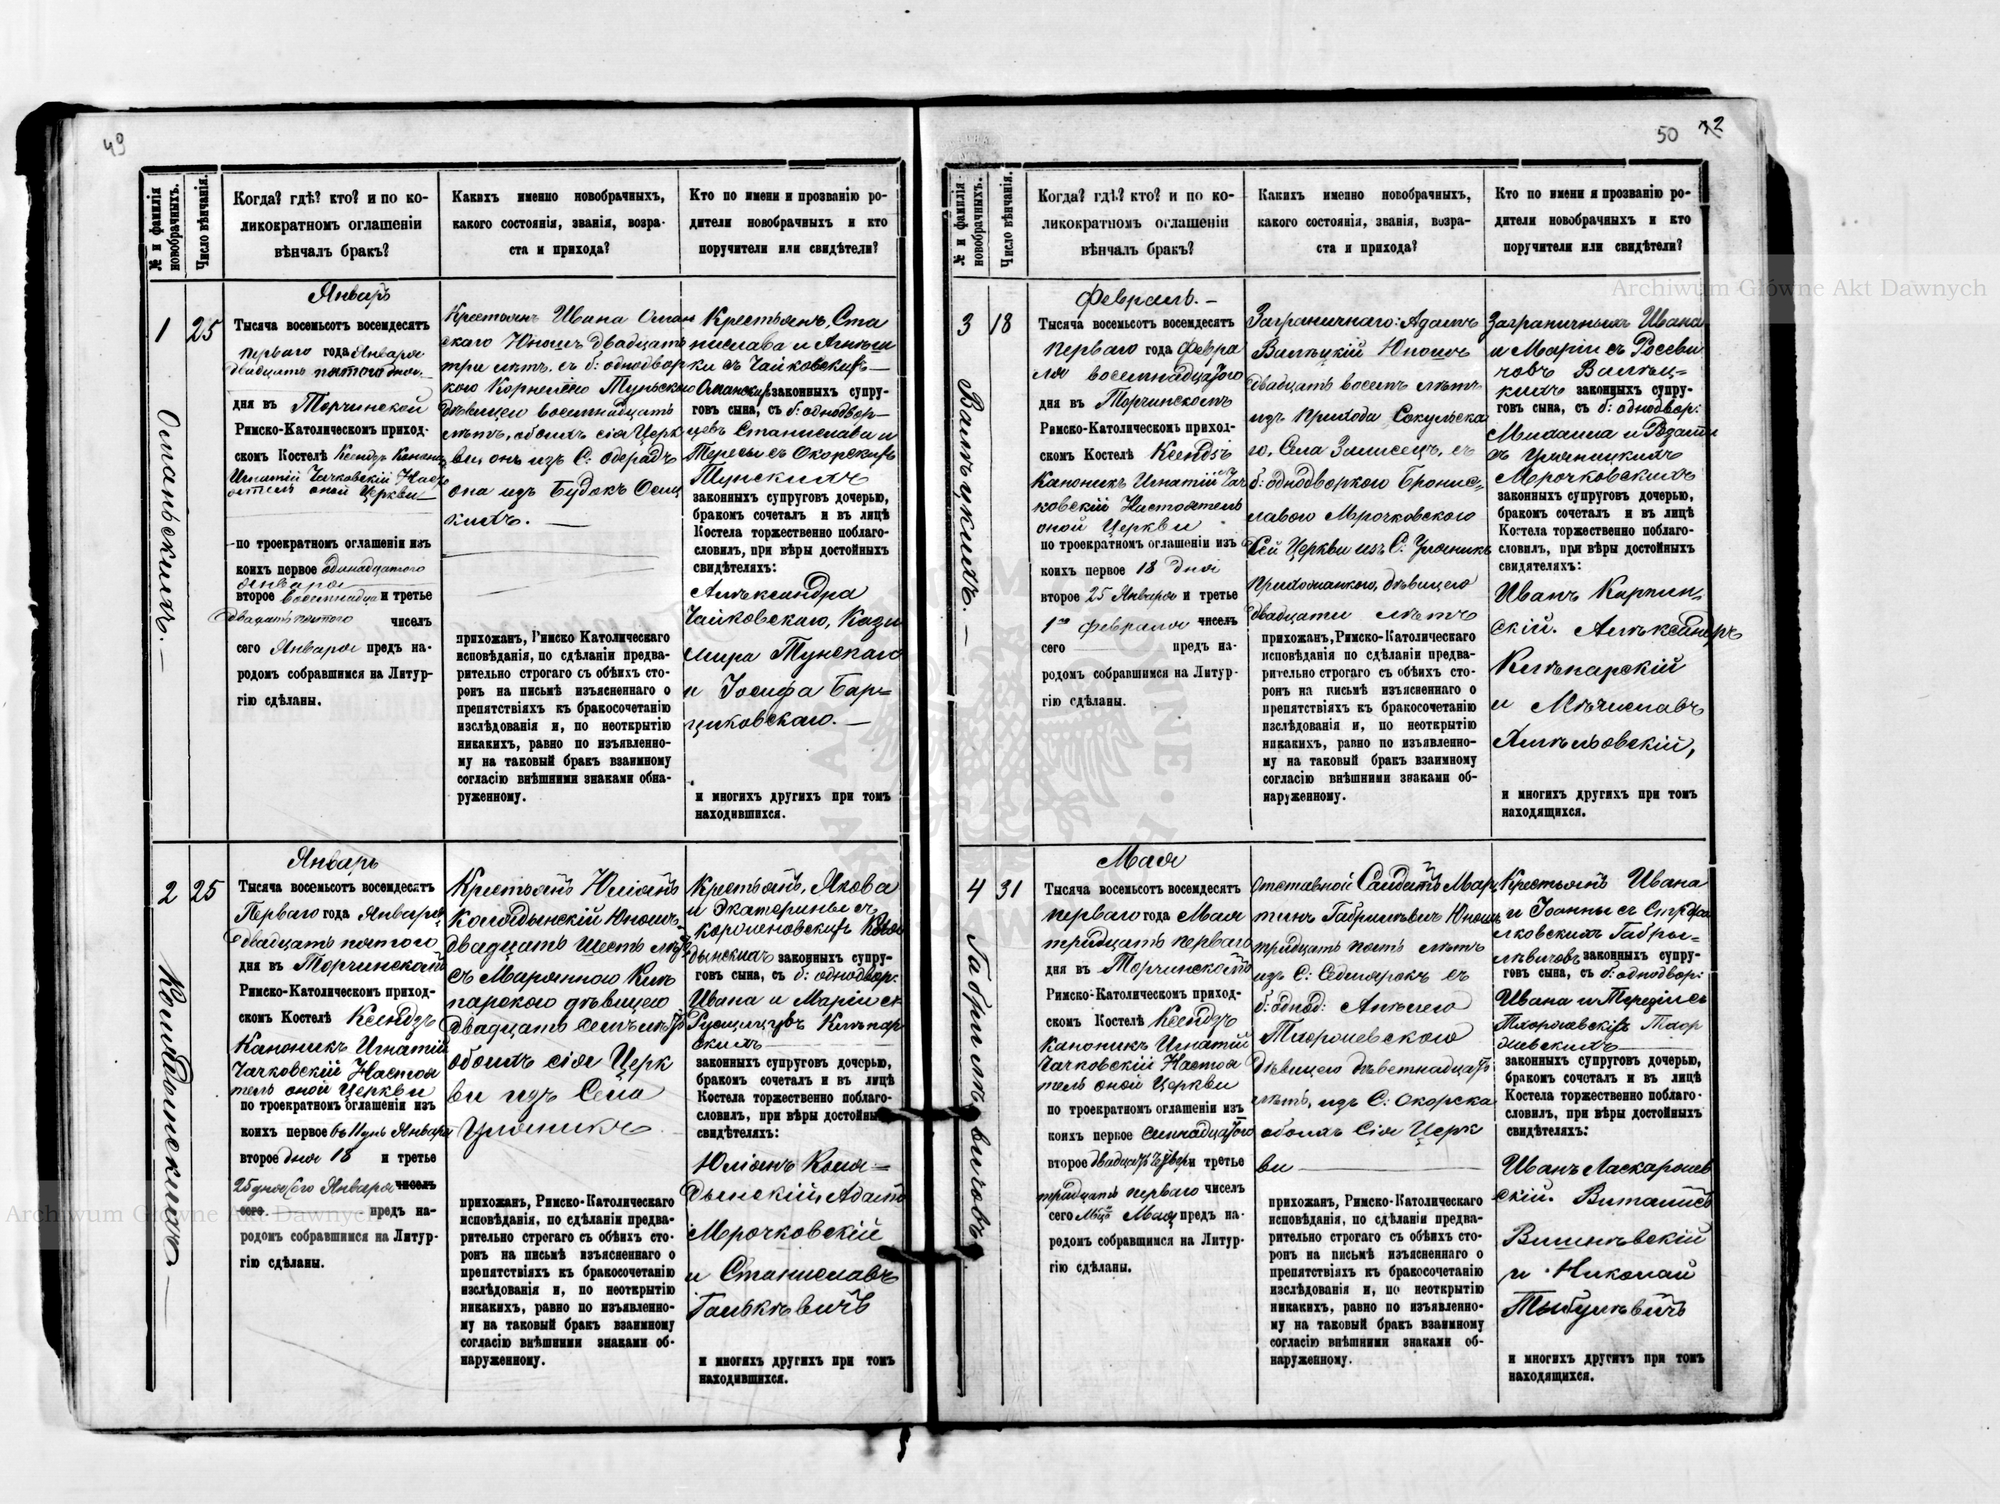 49
№ и фамилія новобрачныхъ.
Число вѣнчанія.
Когда? гдѣ? кто? и по ко-
ликократномъ оглашеніи
вѣнчалъ бракъ?
Какихъ именно новобрачныхъ,
какого состоянія, званія, возра-
ста и прихода?
Кто по имени и прозванію ро-
дители новобрачныхъ и кто
поручители или свидѣтели?
1
25
Январь
Тысяча восемьсотъ восемдесятъ
перваго года Января
двадцать пятого дня
дня въ Торчинской
Римско-Католическомъ приход-
скомъ Костелѣ Ксендзъ
Игнатій Чачковскій
оной Церкви
по троекратномъ оглашеніи изъ
коихъ первое одинадцатого
января
второе восемнадца и третье
двадцать пятого чиселъ
сего Января предъ на-
родомъ собравшимся на Литур-
гію сдѣланы.
Ивана
скаго Юнош двадцать
три лѣт. съ б: однодвор
кою Корнелiею Тунскою
дѣвицею восемнадцать
лѣтъ, обоихъ сія Церк
ви, онъ изъ С:
она изъ Будокъ Осиц
кихъ. —
прихожан, Римско Католическаго
исповѣданія, по сдѣланіи предва-
рительно строгаго съ обѣихъ сто-
ронъ на письмѣ изъясненнаго о
препятствіяхъ къ бракосочетанію
изслѣдованія и, по неоткрытію
никакихъ, равно по изъявленно-
му на таковый бракъ взаимному
согласію внѣшними знаками обна-
руженному.
Крестьян, Ста
нислава и Агнеш
ки съ Чайковскихъ
законныхъ супру-
говъ сына, съ б: однодвор—
цевъ Станислава и
Тересы съ Окорскихъ
Тунскихъ
законныхъ супруговъ дочерью,
бракомъ сочеталъ и въ лицѣ
Костела торжественно поблаго-
словилъ, при вѣры достойныхъ
свидѣтеляхъ:
Александра
Чайковскаго, Кази
мира Тунскаго
и Іосифа Бар=
циковскаго. —
и многихъ другихъ при томъ
находившихся.
2
25
Январь
Тысяча восемьсотъ восемдесятъ
Перваго года Января
двадцать пятого
дня въ Торчинскомъ
Римско-Католическомъ приход-
скомъ Костелѣ Ксендзъ
Каноникъ Игнатій
Чачковскій Настоя
тель оной Церкви
по троекратномъ оглашеніи изъ
коихъ первое Января
второе дня 18 и третье
25 дня сего Января чиселъ
сего предъ на-
родомъ собравшимся на Литур-
гію сдѣланы.
Крестьянъ Юліанъ
Колядынскій Юнош
двадцать шесть лѣтъ
съ Маріянною Кле
парскою дѣвицею
двадцать семь лѣтъ
обоихъ сія Церк
ви изъ Села
прихожан, Римско-Католическаго
исповѣданія, по сдѣланіи предва-
рительно строгаго съ обѣихъ сто-
ронъ на письмѣ изъясненнаго о
препятствіяхъ къ бракосочетанію
изслѣдованія и, по неоткрытію
никакихъ, равно по изъявленно-
му на таковый бракъ взаимному
согласію внѣшними знаками об-
наруженному.
Крестьян, Якова
и Екатерины съ
дынскихъ законныхъ супру-
говъ сына, съ б: однодвор:
Ивана и Маріи съ
Клепар
скихъ
законныхъ супруговъ дочерью,
бракомъ сочеталъ и въ лицѣ
Костела торжественно поблаго-
словилъ, при вѣры достойныхъ
свидѣтеляхъ:
Юліянъ Коля=
дынскій, Адамъ
Мрочковскій
и Станиславъ
Галькевичъ
и многихъ другихъ при томъ
находившихся.
50
№ и фамилія новобрачныхъ.
Число вѣнчанія.
Когда? гдѣ? кто? и по ко-
ликократномъ оглашеніи
вѣнчалъ бракъ?
Какихъ именно новобрачныхъ,
какого состоянія, званія, возра-
ста и прихода?
Кто по имени и прозванію ро-
дители новобрачныхъ и кто
поручители или свидѣтели?
3
18
Февраль. —
Тысяча восемьсотъ восемдесятъ
перваго года Февра
ля восемнадцатого
дня въ Торчинскомъ
Римско-Католическомъ приход-
скомъ Костелѣ Ксендзъ
Каноникъ Игнатій Чач
ковскій Настоятель
оной Церкви
по троекратномъ оглашеніи изъ
коихъ первое 18 дня
второе 25 Января и третье
1го Февраля чиселъ
сего предъ на-
родомъ собравшимся на Литур-
гію сдѣланы.
Заграничнаго: Адамъ
Юношъ
двадцать восемь лѣтъ
изъ прихода Сокульска
го, Села съ
б: однодворкою Бронис=
лавою Мрочковскою
сей Церкви изъ С:
прихожанкою, дѣвицею
двадцати лѣтъ
прихожан, Римско-Католическаго
исповѣданія, по сдѣланіи предва-
рительно строгаго съ обѣихъ сто-
ронъ на письмѣ изъясненнаго о
препятствіяхъ къ бракосочетанію
изслѣдованія и, по неоткрытію
никакихъ, равно по изъявленно-
му на таковый бракъ взаимному
согласію внѣшними знаками об-
наруженному.
Заграничныхъ Ивана
и Маріи съ
законныхъ супру-
говъ сына, съ б: однодвор:
Михаила и Розаліи
Мрочковскихъ
законныхъ супруговъ дочерью,
бракомъ сочеталъ и въ лицѣ
Костела торжественно поблаго-
словилъ, при вѣры достойныхъ
свидятеляхъ:
Иванъ Карпин
скій. Александръ
Клепарскій
и Мечиславъ
Хмѣлёвскій,
и многихъ другихъ при томъ
находящихся.
4
31
Габрилевичовъ
Мая
Тысяча восемьсотъ восемдесятъ
перваго года Мая
тридцать перваго
дня въ Торчинскомъ
Римско-Католическомъ приход-
скомъ Костелѣ Ксендзъ
Каноникъ Игнатій
Чачковскій Настоя
тель оной Церкви
по троекратномъ оглашеніи изъ
коихъ первое семнадцатого
второе и третье
тридцать перваго чиселъ
сего Мая предъ на-
родомъ собравшимся на Литур-
гію сдѣланы.
Отставной Солдатъ Мар
тинъ Габрилевичъ Юнош
тридцать пять лѣтъ
изъ С: Седмярокъ съ
б: однод:
дѣвицею
лѣтъ, изъ С: Окорска
обоихъ Сія Церк
ви —
прихожан, Римско-Католическаго
исповѣданія, по сдѣланіи предва-
рительно строгаго съ обѣихъ сто-
ронъ на письмѣ изъясненнаго о
препятствіяхъ къ бракосочетанію
изслѣдованія и, по неоткрытію
никакихъ, равно по изъявленно-
му на таковый бракъ взаимному
согласію внѣшними знаками об-
наруженному.
Крестьянъ Ивана
и Іоанны съ
Габри=
левичовъ законныхъ супру-
говъ сына, съ б: однодвор:
Ивана и
законныхъ супруговъ дочерью,
бракомъ сочеталъ и въ лицѣ
Костела торжественно поблаго-
словилъ, при вѣры достойныхъ
свидѣтеляхъ:
Иванъ
скій. Виталисъ
Вишневскій
и Николай
и многихъ другихъ при томъ
находящихся.
Archiwum Główne Akt Dawnych
Archiwum Główne Akt Dawnych